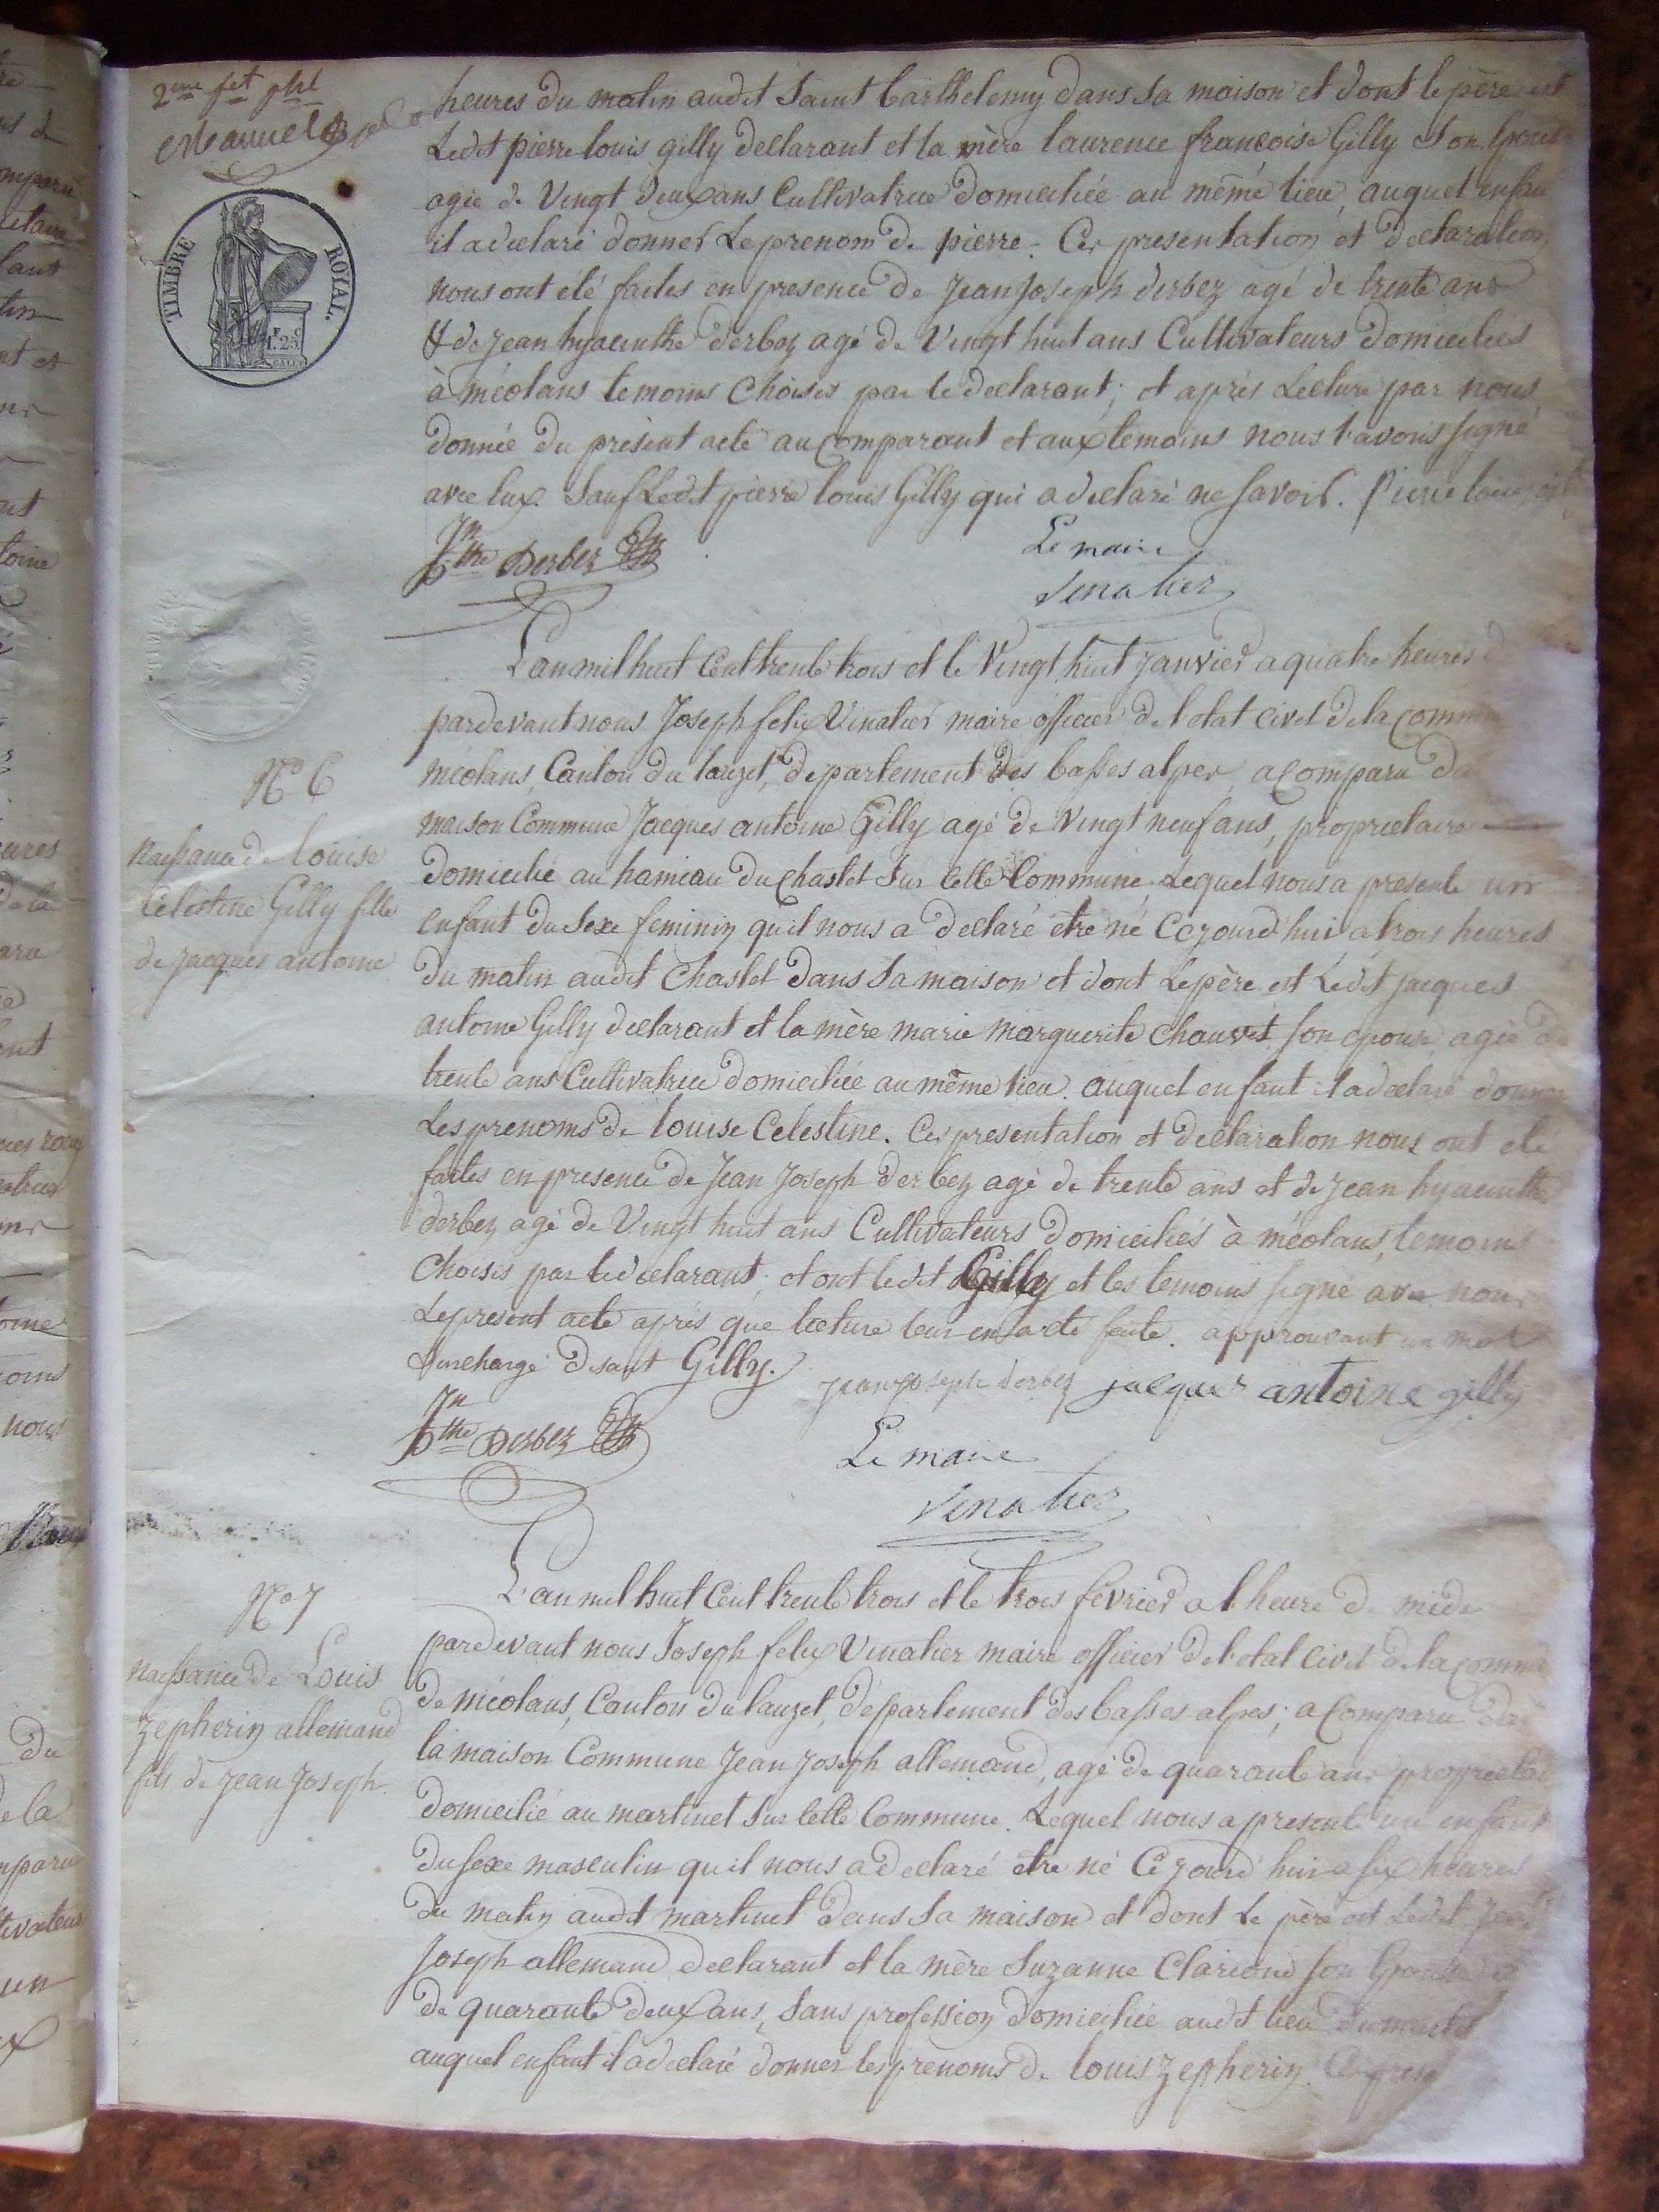 2eme fet
heures du matin audit Saint Barthelemy dans sa maison et dont le père est
Ledit pierre louis gilly declarant et la mère laurence françoise Gilly son Epouse
agée de Vingt deux ans Cultivatrice Domiciliée au même lieu, auquel enfant
il a declaré donner Le prenom de pierre. Ces presentation et declaration
nous ont été faites en presence de Jean Joseph derbez agé de trente ans
& de Jean hyacinthe derbez agé de Vingt huit ans Cultivateurs domiciliés
à méolans temoins Choisis par le declarant; et après Lecture par nous
donnée du présent acte au Comparant et aux témoins nous l'avons signé
avec eux Sauf Ledit pierre louis Gilly qui a declaré ne savoir. Pierre louis
TIMBRE ROYAL.
Jn hthe Derbez
Le maire
Vinatier
L'an mil huit Cent trente trois et le Vingt huit Janvier a quatre heures
pardevant nous Joseph felix Vinatier maire officier de l'etat civil de la Comm
méolans, Canton du lauzet, departement des basses alpes, a Comparu da
maison Commune Jacques antoine Gilly agé de Vingt neuf ans, proprietaire
domicilié au hameau du Chastel sur Cette Commune. Lequel nous a presenté un
enfant du Sexe feminin qu'il nous a declaré etre né Cejourd'hui a trois heures
du matin audit Chastel dans sa maison et dont Le père est Ledit jacques
antoine Gilly declarant et la mère marie marguerite Chauvet son epouse agée de
trente ans Cultivatrice domiciliée au même lieu. auquel enfant il a declaré donner
Les prenoms de louise Celestine. Ces presentation et declaration nous ont eté
faites en presence de Jean Joseph derbez agé de trente ans et de Jean hyacinthe
derbez agé de Vingt huit ans Cultivateurs domiciliés à méolans, temoins
Choisis par le declarant; et ont ledit Gilly et les temoins signé avec nous
Le present acte après que lecture leur en a eté faite. approuvant un mot
Surchargé disant Gilly.
Jean Joseph derbez jacques antoine gilly
Jn hthe Derbez
Le maire
Vinatier
No 6
Naissance de louise
Celestine Gilly fille
de jacques antoine
L'an mil huit Cent trente trois et le trois fevrier a l'heure de midi
pardevant nous Joseph felix Vinatier maire officier de l'etat Civil de la Comm
de méolans, Canton du lauzet, département des basses alpes; a Comparu da
la maison Commune Jean Joseph allemand, agé de quarante ans proprietai
domicilié au martinet sur Cette Commune. Lequel nous a presenté un enfant
du sexe masculin qu'il nous a declaré etre né Cejourd'hui a six heures
du matin audit martinet dans sa maison et dont Le père est Ledit Jean
Joseph allemand declarant et la mère Suzanne Clariond son Epouse
de quarante deux ans, sans profession domiciliée audit lieu du martinet
auquel enfant il a declaré donner les prenoms de louis zepherin. Ces pres
No 7
Naissance de Louis
zepherin allemand
fils de Jean Joseph